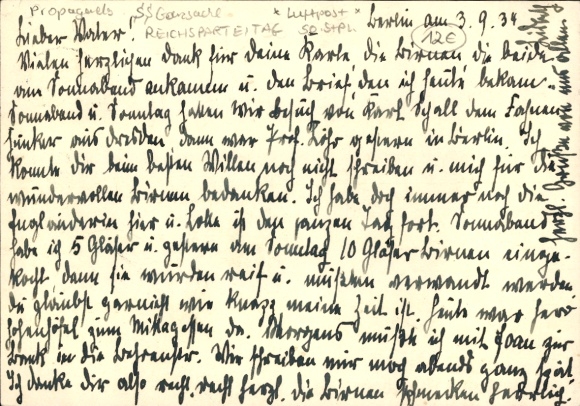 Propaganda SS Ganzsache * Luftpost *
REICHSPARTEITAG SO-STPL
12€
Berlin am 3.9.34
Lieber Vater!
Vielen herzlichen Dank für deine Karte, die Birnen die beide
am Sonnabend ankamen u. den Brief, den ich heute bekam.
Sonnabend u. Sonntag hatten wir Besuch von Karl Schall dem Fahnen-
junker aus Dresden, dann war Prof. Löhr gestern in Berlin. Ich
konnte dir beim besten Willen noch nicht schreiben u. mich für die
wundervollen Birnen bedanken. Ich habe doch immer noch die
Engländerin hier u. Lotte ist den ganzen Tag fort. Sonnabend
habe ich 5 Gläser u. gestern am Sonntag 10 Gläser Birnen einge-
kocht denn sie wurden reif u. mußten verwandt werden
du glaubst garnicht wie knapp meine Zeit ist. Heute war Herr
zum Mittagessen da. Morgens mußte ich mit Joan zur
Bank in die Behrenstr. Wir schreiben nur noch abends ganz spät
Ich danke dir also recht, recht herzl. die Birnen schmecken herrlich.
herzl. Grüße von uns allen